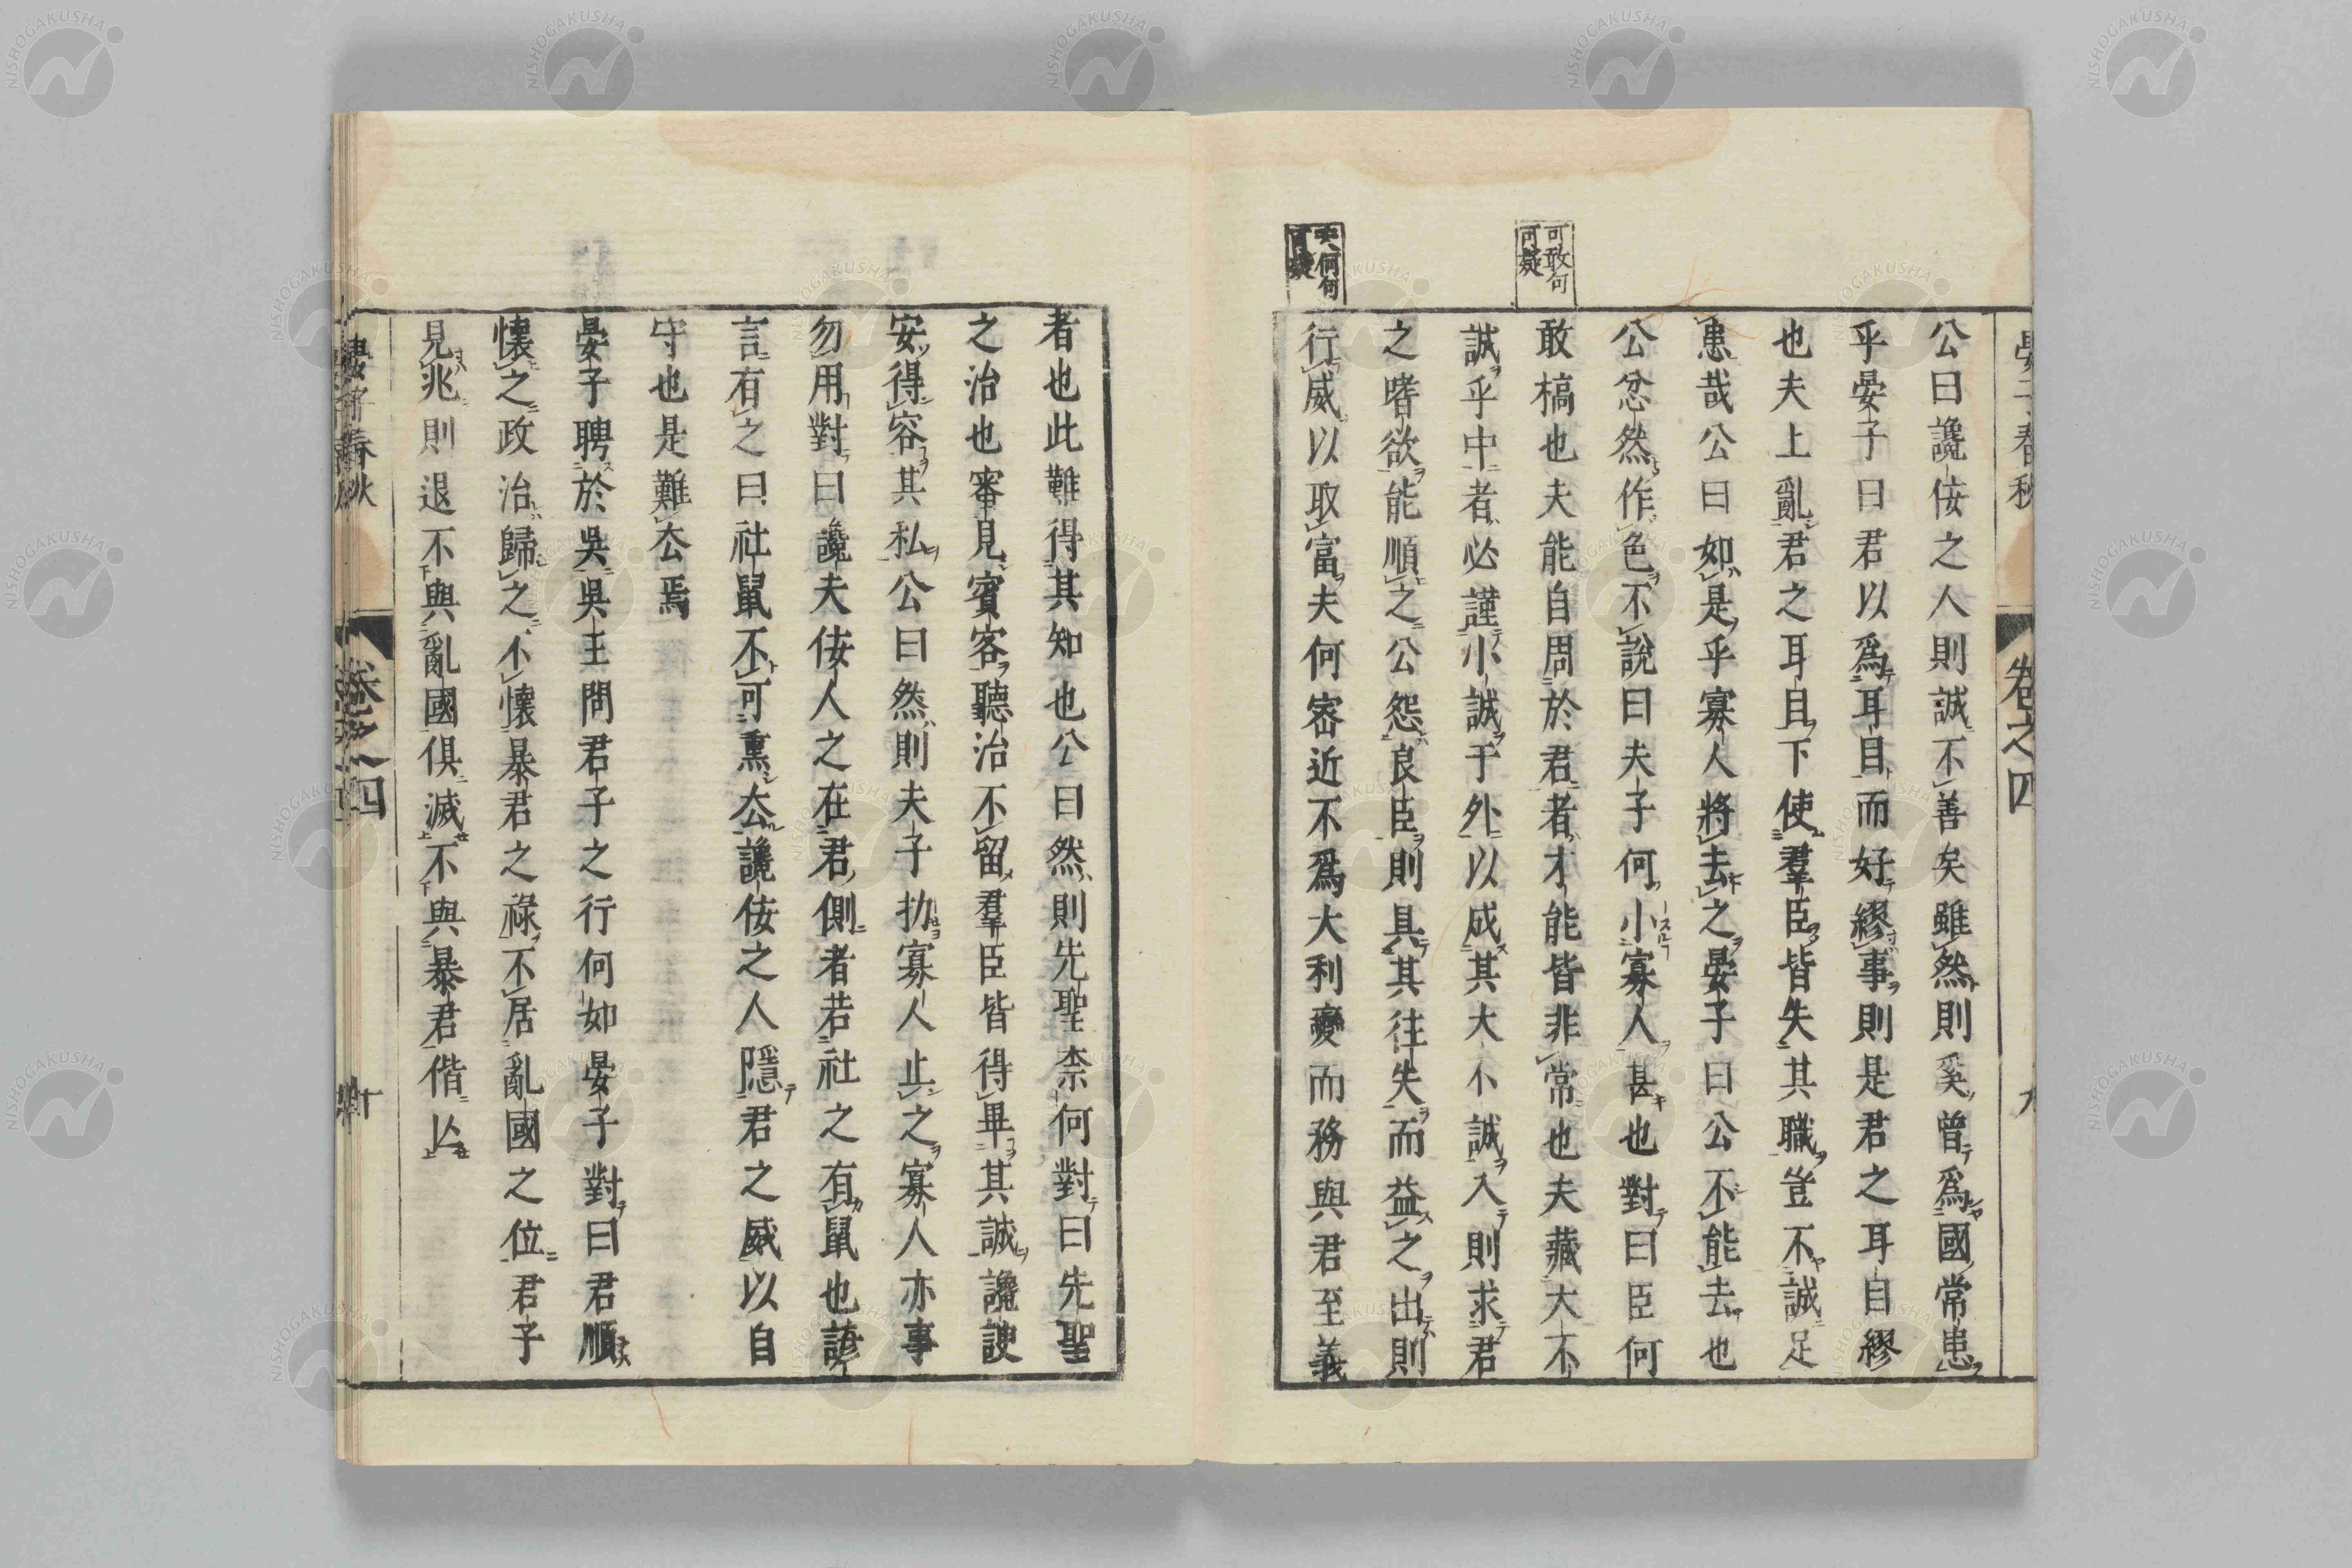 晏子春秋　卷之四　九
可敢何
可疑
夫何何
可疑
公曰讒佞之人則誠不善矣雖然則奚曾爲國常患
乎晏子曰君以爲耳目而好繆事則是君之耳目繆
也夫上亂君之耳目下使羣臣皆失其職豈不誠足
患哉公曰如是乎寡人將去之晏子曰公不能去也
公忿然作色不說曰夫子何小寡人甚也對曰臣何
敢槁也夫能自周於君者才能皆非常也夫藏大不
誠乎中者必謹小誠于外以成其大不誠入則求君
之嗜欲能順之公怨良臣則具其往失而益之出則
行威以取富夫何密近不爲大利變而務與君至義
者也此難得其知也公曰然則先聖柰何對曰先聖
之治也審見賓客聽治不留羣臣皆得畢其誠讒諛
安得容其私公曰然則夫子扐寡人止之寡人亦事
勿用對曰讒夫佞人之在君側者若社之有鼠也諺
言有之曰社鼠不可熏厺讒佞之人隱君之威以自
守也是難厺焉
晏子聘於吳吳王問君子之行何如晏子對曰君順
懷之政治歸之不懷暴君之祿不居亂國之位君子
見兆則退不與亂國俱滅不與暴君偕亾
晏子春秋　卷之四　十